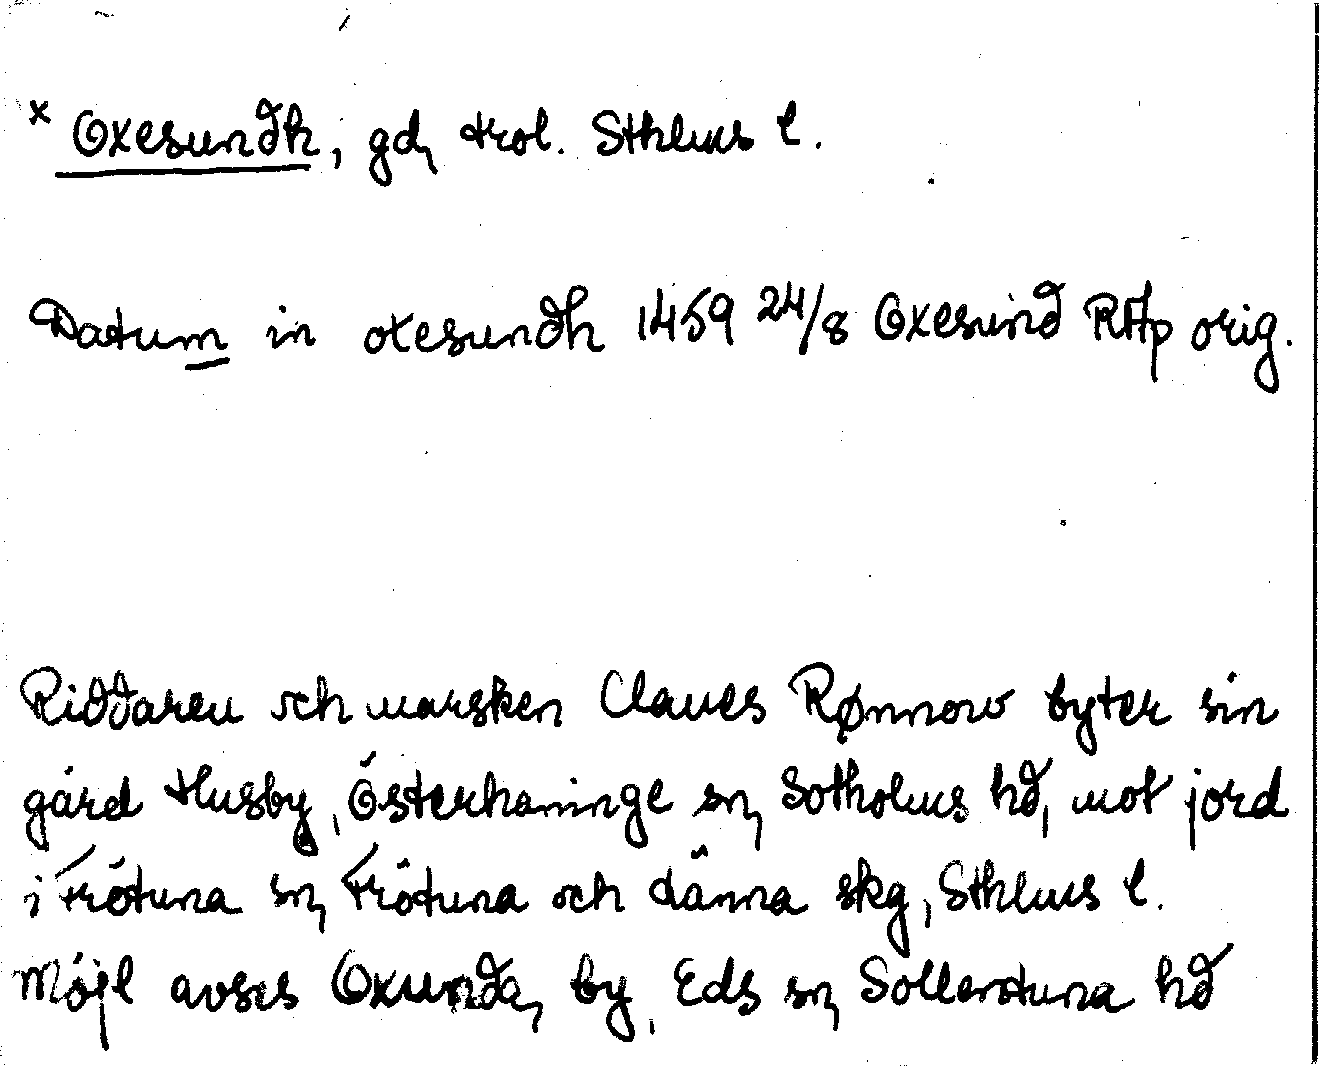 x Oxesundh, gd, trol. Sthlms l.
Datum in oxesundh 1459 24/8 Oxesund RAp orig.
Riddaren och marsken Claues Rønnow byter sin
gård Husby, Österhaninge sn, Sotholms hd, mot jord
i Frötuna sn, Frötuna och Länna skg, Sthlms l.
Möjl avses Oxunda, by, Eds sn, Sollentuna hd